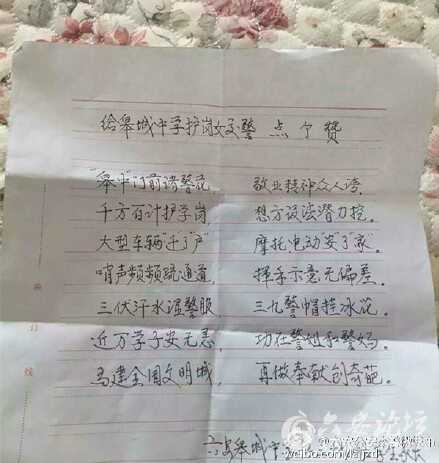 给皋城中学护岗女交警 点个赞
"皋中"门前谱警花, 敬业精神众人夸.
千方百计护学岗 想方设法潜力挖.
大型车辆"迁"了"户" 摩托电动"安"了"家".
哨声频频疏通道, 挥手示意无偏差.
三伏汗水湿警服 三九警帽挂冰花.
近万学子安无恙, 功在警姐和警妈.
为建全国文明城, 再做奉献创奇葩.
六安皋城中
六安论坛
装订线